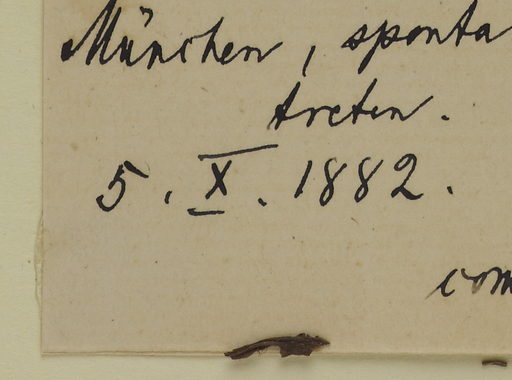 München, sponta
treten.
5. X. 1882.
com